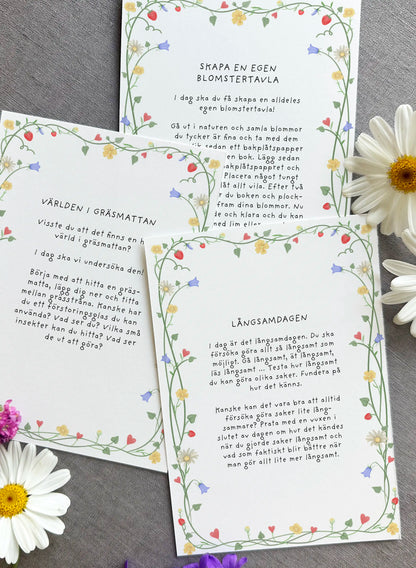 SKAPA EN EGEN
BLOMSTERTAVLA
I dag ska du få skapa en alldeles
egen blomstertavla!
Gå ut i naturen och samla blommor
du tycker är fina och ta med dem
bakplåtspapper
en bok. Lägg sedan
bakplåtspappret och
Placera något tungt
låt allt vila. Efter två
du boken och plock-
fram dina blommor. Nu
och klara och du kan
med lim eller
VÄRLDEN I GRÄSMATTAN
Visste du att det finns en h
värld i gräsmattan?
I dag ska vi undersöka den!
Börja med att hitta en gräs-
matta, lägg dig ner och titta
mellan grässtråna. Kanske har
du ett förstoringsglas du kan
använda? Vad ser du? Vilka små
insekter kan du hitta? Vad ser
de ut att göra?
LÅNGSAMDAGEN
I dag är det långsamdagen. Du ska
försöka göra allt så långsamt som
möjligt. Gå långsamt, ät långsamt,
läs långsamt ... Testa hur långsamt
du kan göra olika saker. Fundera på
hur det känns.
Kanske kan det vara bra att alltid
försöka göra saker lite lång-
sammare? Prata med en vuxen i
slutet av dagen om hur det kändes
när du gjorde saker långsamt och
vad som faktiskt blir bättre när
man gör allt lite mer långsamt.